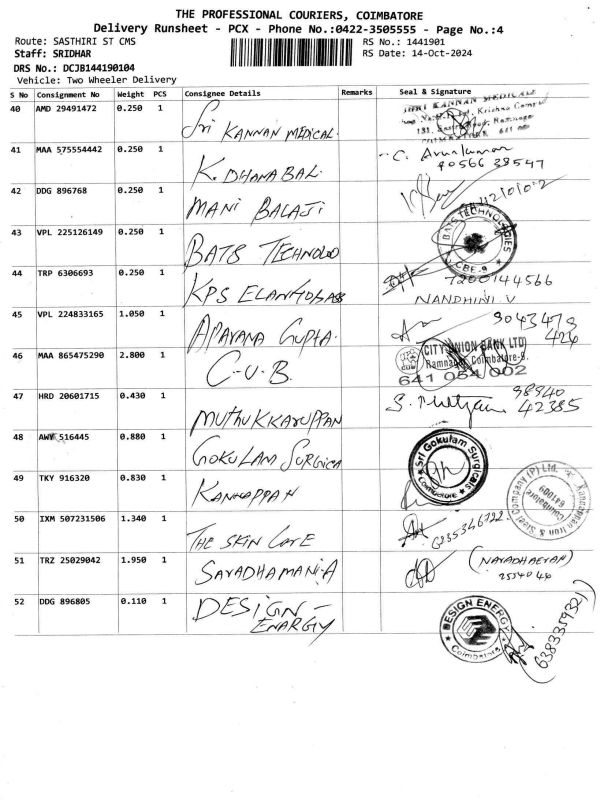 THE PROFESSIONAL COURIERS, COIMBATORE
Delivery Runsheet - PCX - Phone No.:0422-3505555 - Page No.:4
Route: SASTHIRI ST CMS
RS No.: 1441901
Staff: SRIDHAR
RS Date: 14-Oct-2024
DRS No.: DCJB144190104
Vehicle: Two Wheeler Delivery
S No Consignment No Weight PCS Consignee Details Remarks Seal & Signature
40 AMD 29491472 0.250 1
SRI KANNAN MEDICAL
SRI KANNAN MEDICALS
41 MAA 575554442 0.250 1
K. DHANABAL
C. Arunkumar
90566 38547
42 DDG 896768 0.250 1
MANI BALAJI
43 VPL 225126149 0.250 1
BATS TECHNOLO
BATS TECHNOLOGIES
CBE-9
44 TRP 6306693 0.250 1
KPS
7200144566
NANDHINI V
45 VPL 224833165 1.050 1
APARANA GUPTA.
9043479
426
46 MAA 865475290 2.800 1
C-U-B.
CITY UNION BANK LTD
Ramnagar, Coimbatore-9.
641 054 002
47 HRD 20601715 0.430 1
MUTHUKKARUPPAN
98940
42385
48 AWY 516445 0.880 1
GOKULAM SURGICA
Sri Gokulam Surgicals
Coimbatore
49 TKY 916320 0.830 1
KANNAPPAN
Kannappan Iron & Steel Company (P) Ltd.
Coimbatore
641009
50 IXM 507231506 1.340 1
THE SKIN CARE
6385346792
51 TRZ 25029042 1.950 1
SARADHAMANI-A
2554044
52 DDG 896805 0.110 1
DESIGN -
ENERGY
DESIGN ENERGY
Coimbatore
6383359321